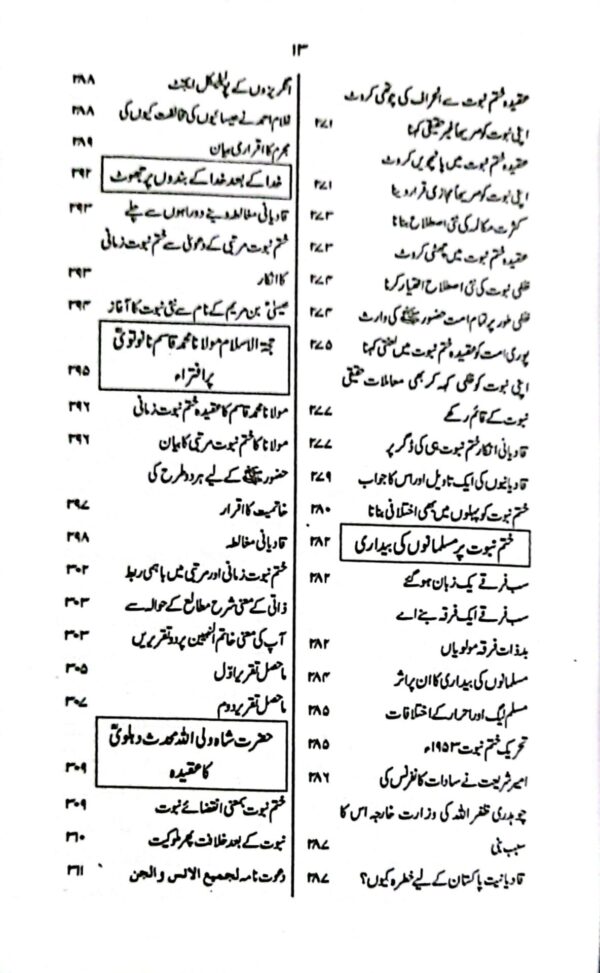 ۱۳
عقیدہ ختم نبوت سے انحراف کی چوتھی کروٹ
اپنی نبوت کو صریحاً غیر حقیقی کہنا ۲۷۱
عقیدہ ختم نبوت میں پانچویں کروٹ
اپنی نبوت کو صریحاً مجازی قرار دینا ۲۷۱
کثرت مکالمہ کی نئی اصطلاح بنانا ۲۷۳
عقیدہ ختم نبوت میں چھٹی کروٹ ۲۷۳
ظلی نبوت کی نئی اصطلاح اختیار کرنا ۲۷۳
ظلی طور پر تمام امت حضور ﷺ کی وارث ۲۷۳
پوری امت کو عقیدہ ختم نبوت میں لعنتی کہنا ۲۷۵
اپنی نبوت کو ظلی کہہ کر بھی معاملات حقیقی
نبوت کے قائم رکھے ۲۷۷
قادیانی انکار ختم نبوت ہی کی ڈگر پر ۲۷۷
قادیانیوں کی ایک تاویل اور اس کا جواب ۲۷۹
ختم نبوت کو پہلوں میں بھی اختلافی بنانا ۲۸۰
ختم نبوت پر مسلمانوں کی بیداری ۲۸۲
سب فرقے یک زبان ہو گئے ۲۸۲
سب فرقے ایک فرقہ بنے اے
بدذات فرقہ مولویاں ۲۸۲
مسلمانوں کی بیداری کا ان پر اثر ۲۸۳
مسلم لیگ اور احرار کے اختلافات ۲۸۵
تحریک ختم نبوت ۱۹۵۳ء ۲۸۵
امیر شریعت نے سادات کانفرنس کی ۲۸۶
چوہدری ظفر اللہ کی وزارت خارجہ اس کا
سبب بنی ۲۸۷
قادیانیت پاکستان کے لیے خطرہ کیوں؟ ۲۸۷
انگریزوں کے پولیٹیکل ایجنٹ ۲۸۸
غلام احمد نے عیسائیوں کی مخالفت کیوں کی ۲۸۸
مجرم کا اقراری بیان ۲۸۹
خدا کے بعد خدا کے بندوں پر جھوٹ ۲۹۲
قادیانی مغالطہ دینے دو راہوں سے چلے ۲۹۳
ختم نبوت مرتبی کے دعویٰ سے ختم نبوت زمانی
کا انکار ۲۹۳
عیسیٰ بن مریم کے نام سے نئی نبوت کا آغاز ۲۹۴
حجۃ الاسلام مولانا محمد قاسم نانوتویؒ
پر افتراء ۲۹۵
مولانا محمد قاسم کا عقیدہ ختم نبوت زمانی ۲۹۶
مولانا کا ختم نبوت مرتبی کا بیان ۲۹۶
حضور ﷺ کے لیے ہر دو طرح کی
خاتمیت کا اقرار ۲۹۷
قادیانی مغالطہ ۲۹۸
ختم نبوت زمانی اور مرتبی میں باہمی ربط ۳۰۲
ذاتی کے معنی شرح مطالع کے حوالہ سے ۳۰۳
آپ کی معنی خاتم النبیین پر دو تقریریں ۳۰۳
ماحصل تقریر اوّل ۳۰۵
ماحصل تقریر دوم ۳۰۷
حضرت شاہ ولی اللہ محدث دہلویؒ
کا عقیدہ ۳۰۹
ختم نبوت بمعنی انقضائے نبوت ۳۰۹
نبوت کے بعد خلافت پھر ملوکیت ۳۱۰
دعوت نامہ لجمیع الانس والجن ۳۱۱